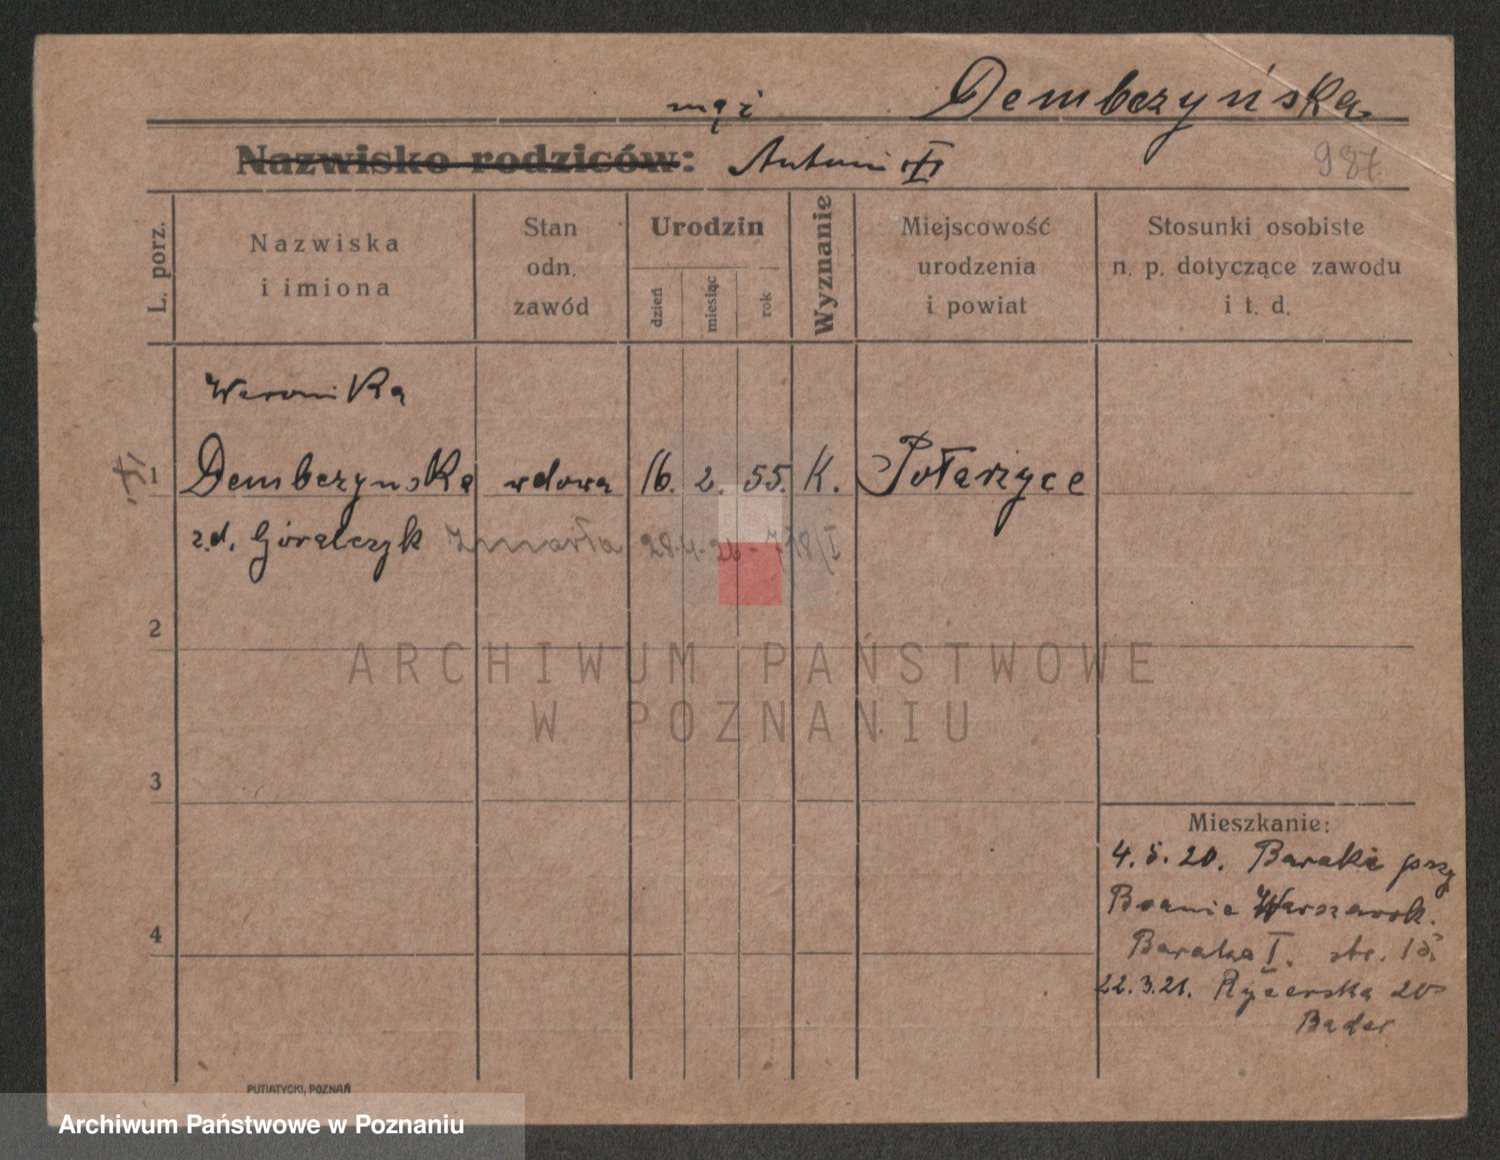 mąż Dembczyńska
Nazwisko rodziców: Antoni
987
L. porz.
Nazwiska
i imiona
Stan
odn.
zawód
Urodzin
dzień
miesiąc
rok
Wyznanie
Miejscowość
urodzenia
i powiat
Stosunki osobiste
n. p. dotyczące zawodu
i t. d.
Weronika
1 Dembczynska wdowa 16. 2. 55. K. Potarzyce
z.d. Góralczyk Zmarła
2
3
4
Mieszkanie:
4.5.20. Baraki przy
Bramie Warszawsk.
Baraka I.
22.3.21. Rycerska 20
Bader
PUTIATYCKI, POZNAŃ
ARCHIWUM PAŃSTWOWE
W POZNANIU
Archiwum Państwowe w Poznaniu